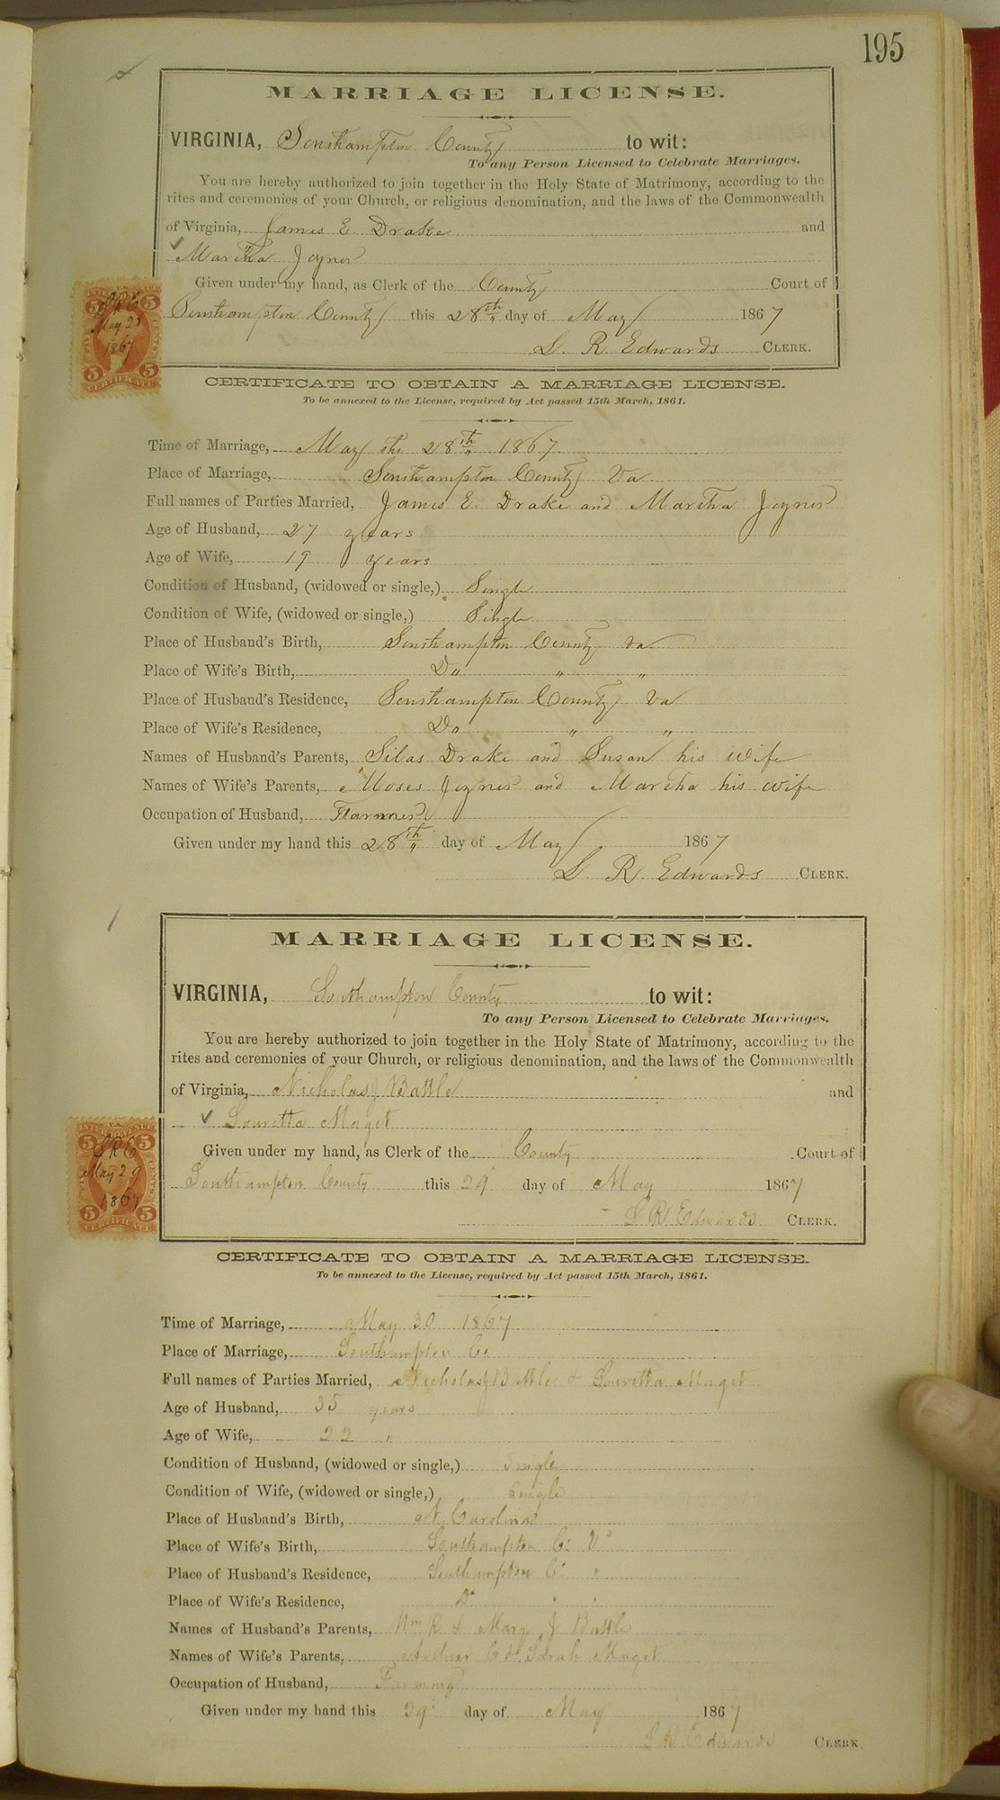 195
MARRIAGE LICENSE.
VIRGINIA, Southampton County to wit:
To any Person Licensed to Celebrate Marriages.
You are hereby authorized to join together in the Holy State of Matrimony, according to the
rites and ceremonies of your Church, or religious denomination, and the laws of the Commonwealth
of Virginia, James E. Drake and
Martha Joyner
Given under my hand, as Clerk of the County Court of
Southampton County this 28th day of May 1867
L. R. Edwards CLERK.
5 5
LRE
May 28
1867
5 5
CERTIFICATE
CERTIFICATE TO OBTAIN A MARRIAGE LICENSE.
To be annexed to the License, required by Act passed 15th March, 1861.
Time of Marriage, May the 28th 1867
Place of Marriage, Southampton County Va
Full names of Parties Married, James E. Drake and Martha Joyner
Age of Husband, 27 years
Age of Wife, 19 years
Condition of Husband, (widowed or single,) Single
Condition of Wife, (widowed or single,) Single
Place of Husband's Birth, Southampton County Va
Place of Wife's Birth, Do " "
Place of Husband's Residence, Southampton County Va
Place of Wife's Residence, Do " "
Names of Husband's Parents, Silas Drake and Susan his wife
Names of Wife's Parents, Moses Joyner and Martha his wife
Occupation of Husband, Farmer
Given under my hand this 28th day of May 1867
L. R. Edwards CLERK.
MARRIAGE LICENSE.
VIRGINIA, Southampton County to wit:
To any Person Licensed to Celebrate Marriages.
You are hereby authorized to join together in the Holy State of Matrimony, according to the
rites and ceremonies of your Church, or religious denomination, and the laws of the Commonwealth
of Virginia, Nicholas J Battle and
Louretta Maget
Given under my hand, as Clerk of the County Court of
Southampton County this 29 day of May 1867
L R Edwards CLERK.
INTER REVENUE
5 5
LRE
May 29
1867
5 5
CERTIFICATE
CERTIFICATE TO OBTAIN A MARRIAGE LICENSE.
To be annexed to the License, required by Act passed 15th March, 1861.
Time of Marriage, May 30 1867
Place of Marriage, Southampton Co
Full names of Parties Married, Nicholas J Battle & Louretta Maget
Age of Husband, 35 years
Age of Wife, 22 "
Condition of Husband, (widowed or single,) Single
Condition of Wife, (widowed or single,) Single
Place of Husband's Birth, N. Carolina
Place of Wife's Birth, Southampton Co Va
Place of Husband's Residence, Southampton Co "
Place of Wife's Residence, Do " "
Names of Husband's Parents, Wm R & Mary J Battle
Names of Wife's Parents, Sarah Maget
Occupation of Husband, Farming
Given under my hand this 29 day of May 1867
L R Edwards CLERK